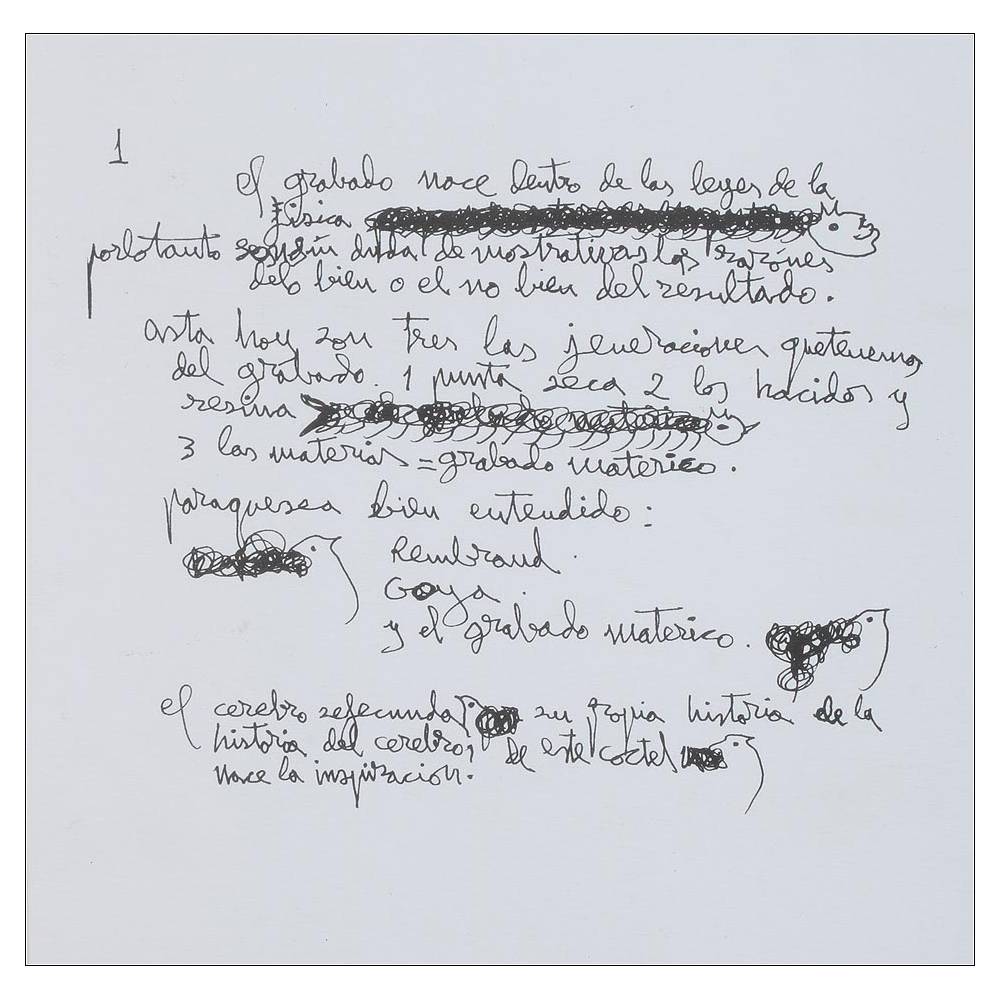 1
el grabado nace dentro de las leyes de la
física
porlotanto son sin duda demostrativas las razones
delo bien o el no bien del resultado.
asta hoy son tres las jeneraciones quetenemos
del grabado. 1 punta seca 2 los hacidos y
resina
3 las materias = grabado materico.
paraquesea bien entendido:
Rembrand.
Goya.
y el grabado materico.
el cerebro sefecunda su propia historia de la
historia del cerebro, de este coctel
nace la inspiracion.